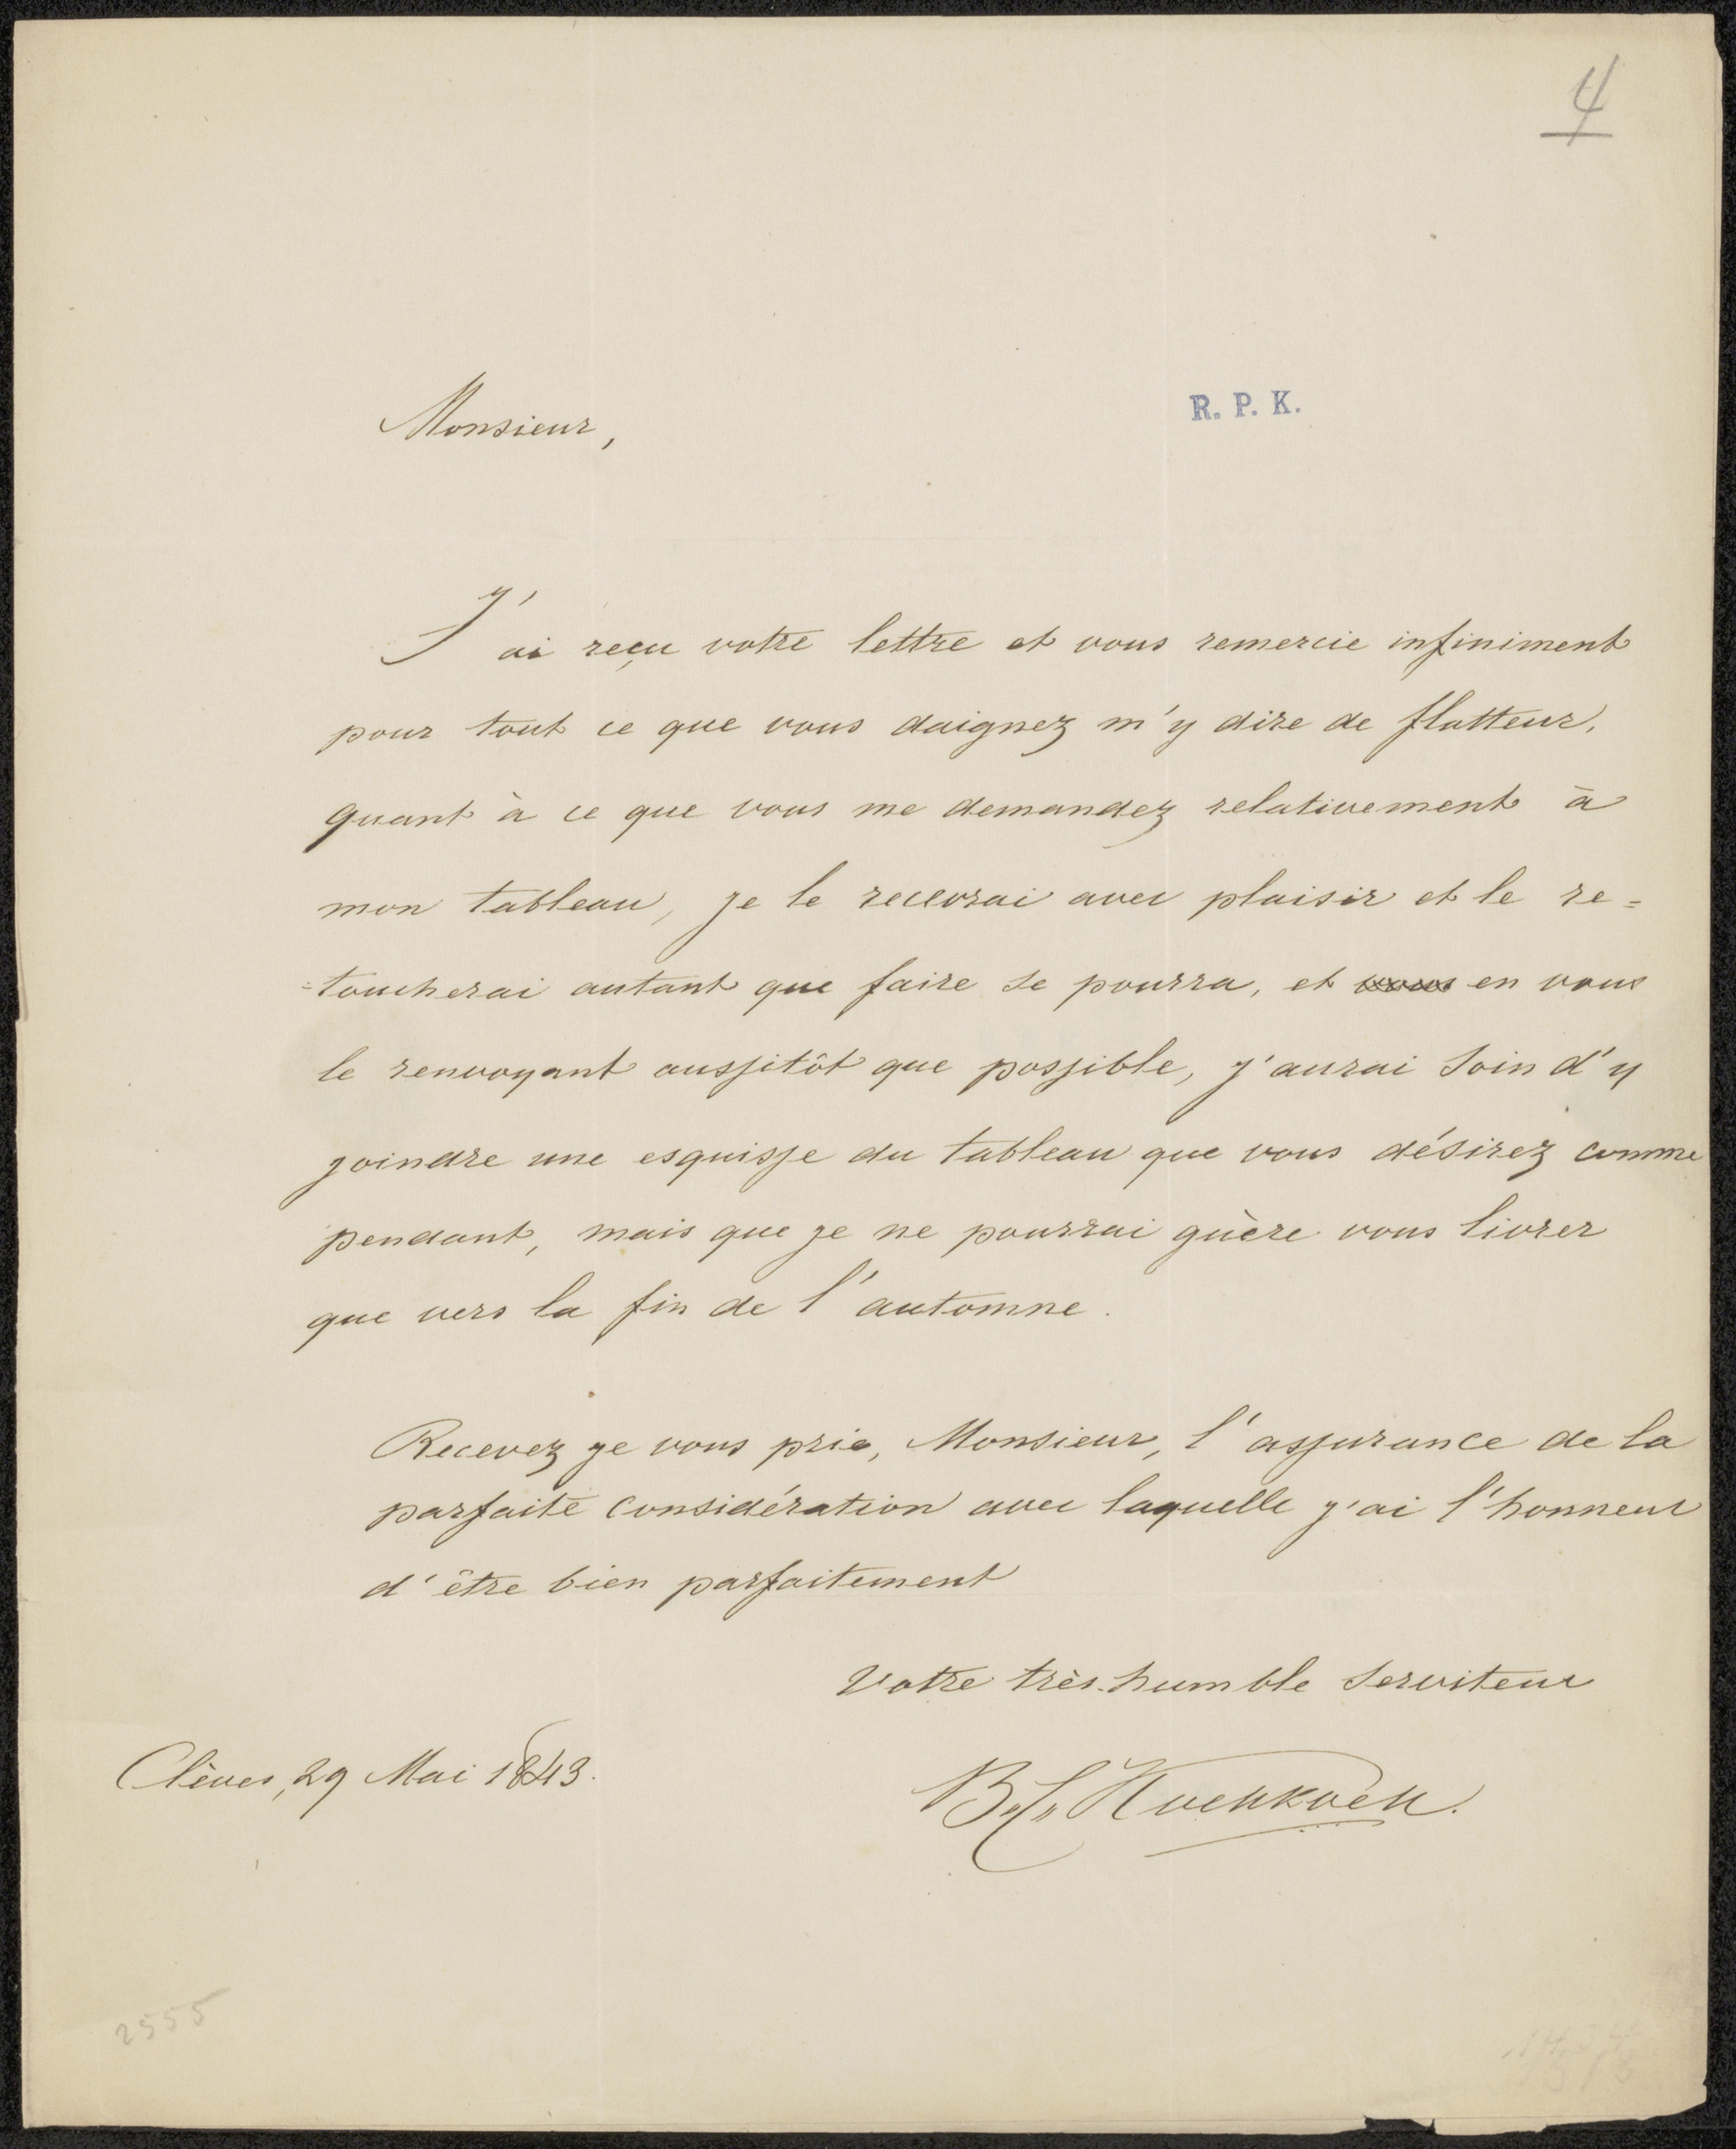 4
Monsieur,
R. P. K.
J'ai reçu votre lettre et vous remercie infiniment
pour tout ce que vous daignez m'y dire de flatteur.
quant à ce que vous me demandez relativement à
mon tableau, je le recevrai avec plaisir et le re=
=toucherai autant que faire se pourra, et vous en vous
le renvoyant aussitôt que possible, j'aurai soin d'y
joindre une esquisse du tableau que vous désirez comme
pendant, mais que je ne pourrai guère vous livrer
que vers la fin de l'automne.
Recevez je vous prie, Monsieur, l'assurance de la
parfaite considération avec laquelle j'ai l'honneur
d'être bien parfaitement
Votre très humble serviteur
Clèves, 29 Mai 1843.
B. C. Koekkoek.
2555